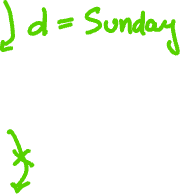 d = Sunday